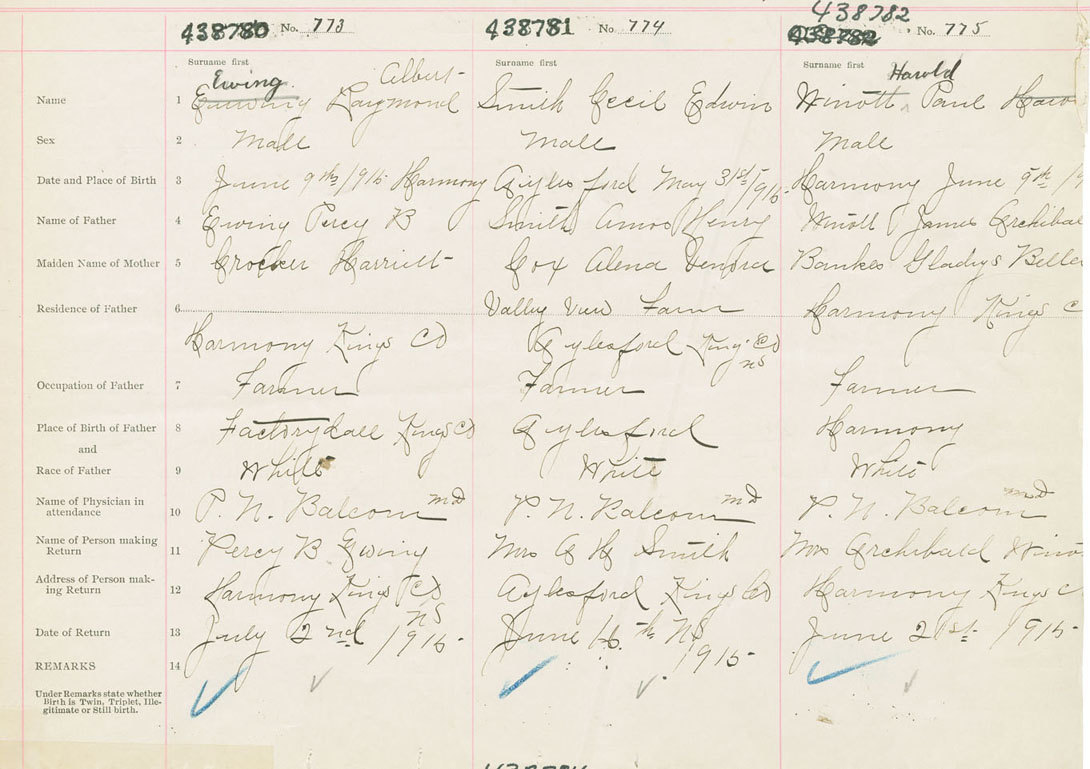 438780 No. 773 438781 No 774 438782 438782 No. 775
Surname first Surname first Surname first
Ewing Albert Harold
Name 1 Ewing Raymond Smith Cecil Edwin Winott Paul Haro
Sex 2 Male Male Male
Date and Place of Birth 3 June 9th/1915 Harmony Aylesford May 31st/1915 Harmony June 9th /9
Name of Father 4 Ewing Percy B Smith Amos Henry Winott James Archibal
Maiden Name of Mother 5 Crocker Harriett Cox Alena Bankes Gladys Belle
Residence of Father 6 Valley View Farm Harmony Kings C
Harmony Kings Co Aylesford Kings Co
NS
Occupation of Father 7 Farmer Farmer Farmer
Place of Birth of Father 8 Factorydale Kings Co Aylesford Harmony
and
Race of Father 9 White White White
Name of Physician in
attendance 10 P. N. Balcom MD P. N. Balcom MD P. N. Balcom MD
Name of Person making
Return 11 Percy B Ewing Mrs A H Smith Mrs Archibald Wino
Address of Person mak-
ing Return 12 Harmony Kings Co Aylesford Kings Co Harmony Kings C
NS
Date of Return 13 July 2nd 1915 June 16th NS 1915 June 21st 1915
REMARKS 14
Under Remarks state whether
Birth is Twin, Triplet, Ille-
gitimate or Still birth.